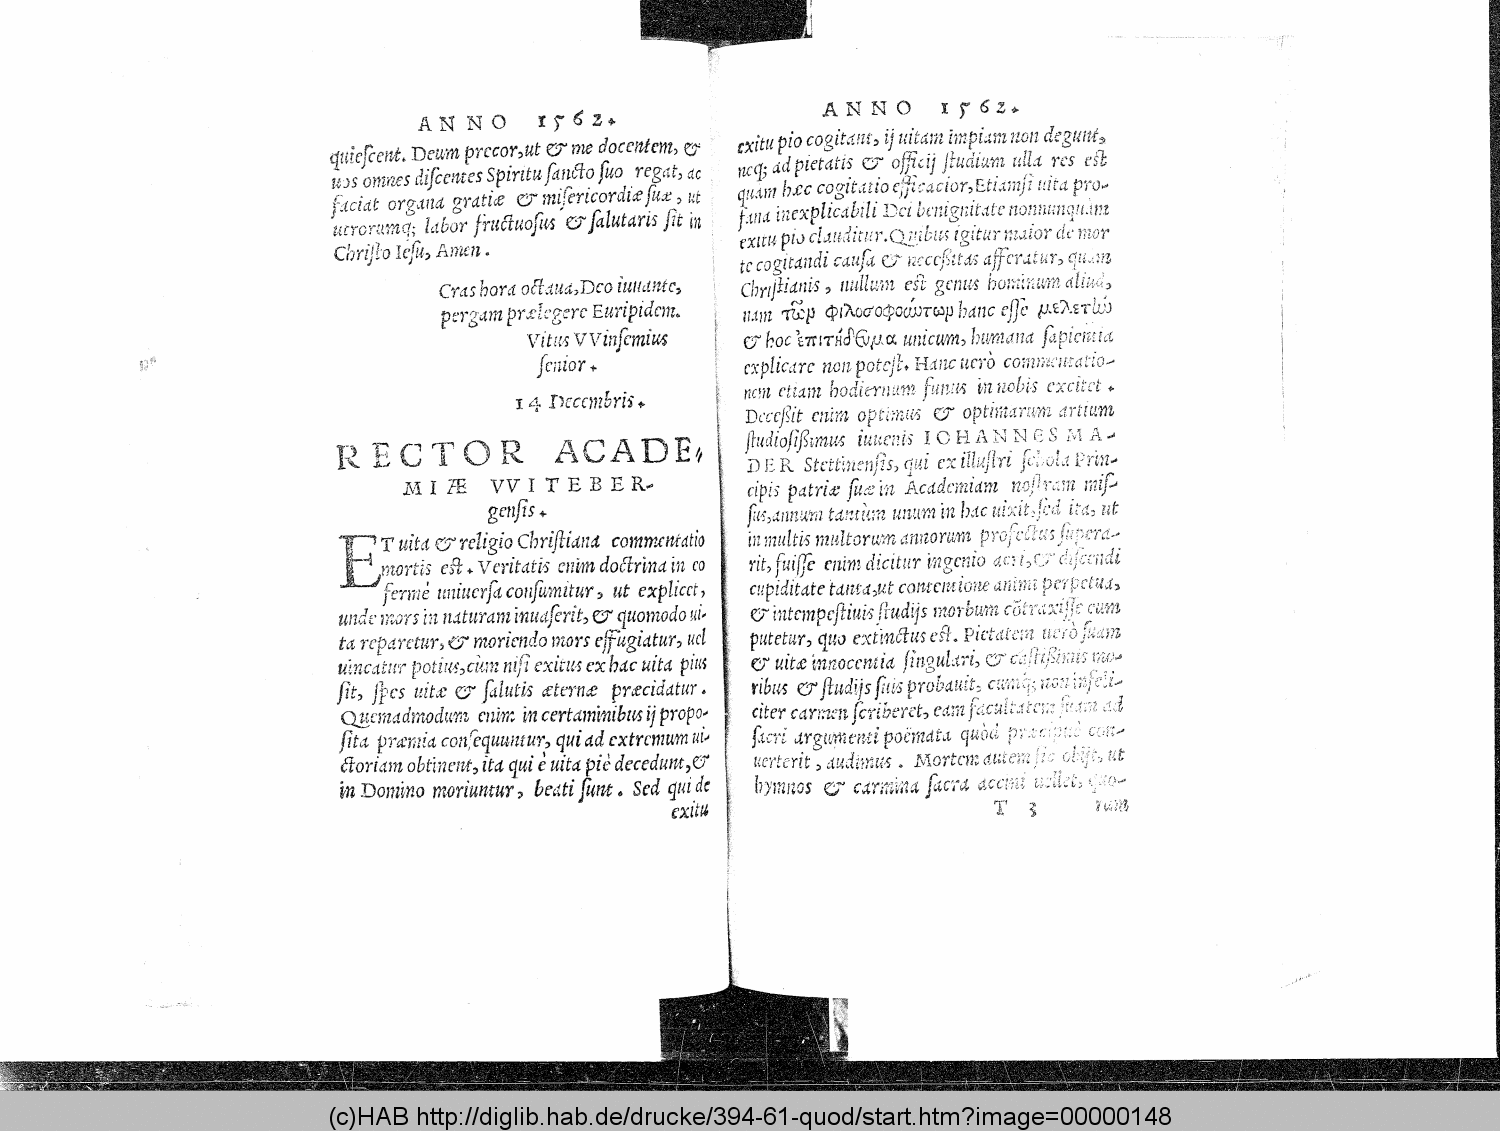 ANNO 1562.
quiescent. Deum precor, ut & me docentem, &
uos omnes discentes Spiritu sancto suo regat, ac
faciat organa gratiæ & misericordiæ suæ, ut
uerorumq; labor fructuosus & salutaris sit in
Christo Iesu, Amen.
Cras hora octaua, Deo iuuante,
pergam prælegere Euripidem.
Vitus VVinsemius
senior.
14 Decembris.
RECTOR ACADE-
MIÆ VVITEBER-
gensis.
ET uita & religio Christiana commentatio
mortis est. Veritatis enim doctrina in eo
fermè uniuersa consumitur, ut explicet,
unde mors in naturam inuaserit, & quomodo ui-
ta reparetur, & moriendo mors effugiatur, uel
uincatur potius, cùm nisi exitus ex hac uita pius
sit, spes uitæ & salutis æternæ præcidatur.
Quemadmodum enim in certaminibus ij propo-
sita præmia consequuntur, qui ad extremum ui-
ctoriam obtinent, ita qui è uita piè decedunt, &
in Domino moriuntur, beati sunt. Sed qui de
exitu
ANNO 1562.
exitu pio cogitant, ij uitam impiam non degunt,
neq; ad pietatis & officij studium ulla res est
quam hæc cogitatio efficacior, Etiamsi uita pro-
fana inexplicabili Dei benignitate nonnunquam
exitu pio clauditur. Quibus igitur maior de mor
te cogitandi causa & necessitas afferatur, quam
Christianis, nullum est genus hominum aliud,
nam τῶν φιλοσοφούντων hanc esse μελετὼ
& hoc ἐπιτήδευμα unicum, humana sapientia
explicare non potest. Hanc uerò commentatio-
nem etiam hodiernum funus in nobis excitet.
Decessit enim optimus & optimarum artium
studiosissimus iuuenis IOHANNES MA-
DER Stettinensis, qui ex illustri schola Prin-
cipis patriæ suæ in Academiam nostram mis-
sus, annum tantùm unum in hac uixit, sed ita, ut
in multis multorum annorum profectus supera-
rit, fuisse enim dicitur ingenio acri, & discendi
cupiditate tanta, ut contentione animi perpetua,
& intempestiuis studijs morbum cõtraxisse eum
putetur, quo extinctus est. Pietatem uerò suam
& uitæ innocentia singulari, & castissimis mo-
ribus & studijs suis probauit, cumq; non infeli-
citer carmen scriberet, eam facultatem suam ad
sacri argumenti poëmata quòd præcipuè con-
uerterit, audimus. Mortem autem sic obijt, ut
hymnos & carmina sacra accini uellet, quo-
T 3 rum
(c)HAB http://diglib.hab.de/drucke/394-61-quod/start.htm?image=00000148